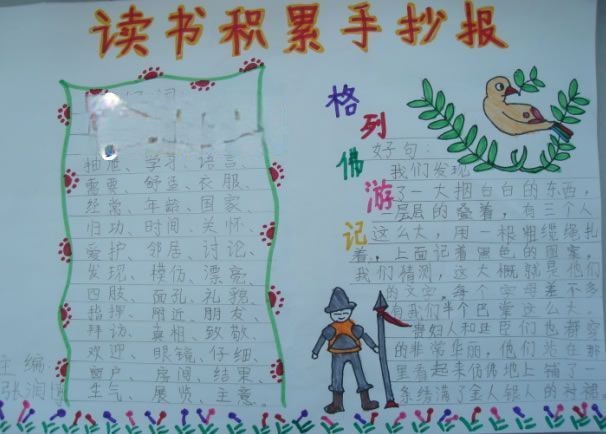 读书积累手抄报
抽、学习、语言、
需要、舒适、衣服、
经常、年龄、国家、
归功、时间、关怀、
爱护、邻居、讨论、
发现、模仿、漂亮、
四肢、面孔、礼、
指挥、附近、朋友、
拜访、真相、致敬、
欢迎、眼镜、仔细、
窗户、房间、结果、
生气、展览、主意。
主编
张润
格列佛游记
好句：
我们发现
了一大捆白白的东西，
一层层的叠着，有三个人
这么大，用一根粗缆绳扎
着，上面记着黑色的图案，
我们猜测，这大概就是他们
的文字，每个字母差不多
有我们半个巴掌这么大。
贵妇人和丑臣们也都穿
的非常华丽，他们站在那
里看起来仿佛地上铺了一
条绣满了金人银人的衬裙